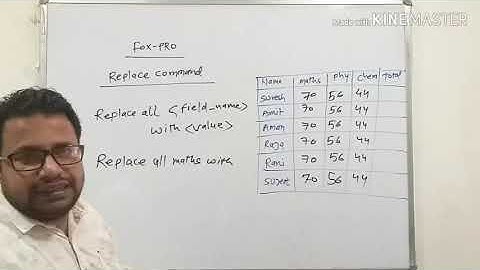 Made with KINEMASTER
Fox-PRO
Replace command
Replace all <field_name>
with <value>
Replace all maths with
Name maths phy chem Total
Suresh 70 56 44
Amit 70 56 44
Aman 70 56 44
Raja 70 56 44
Rani 70 56 44
70 56 44